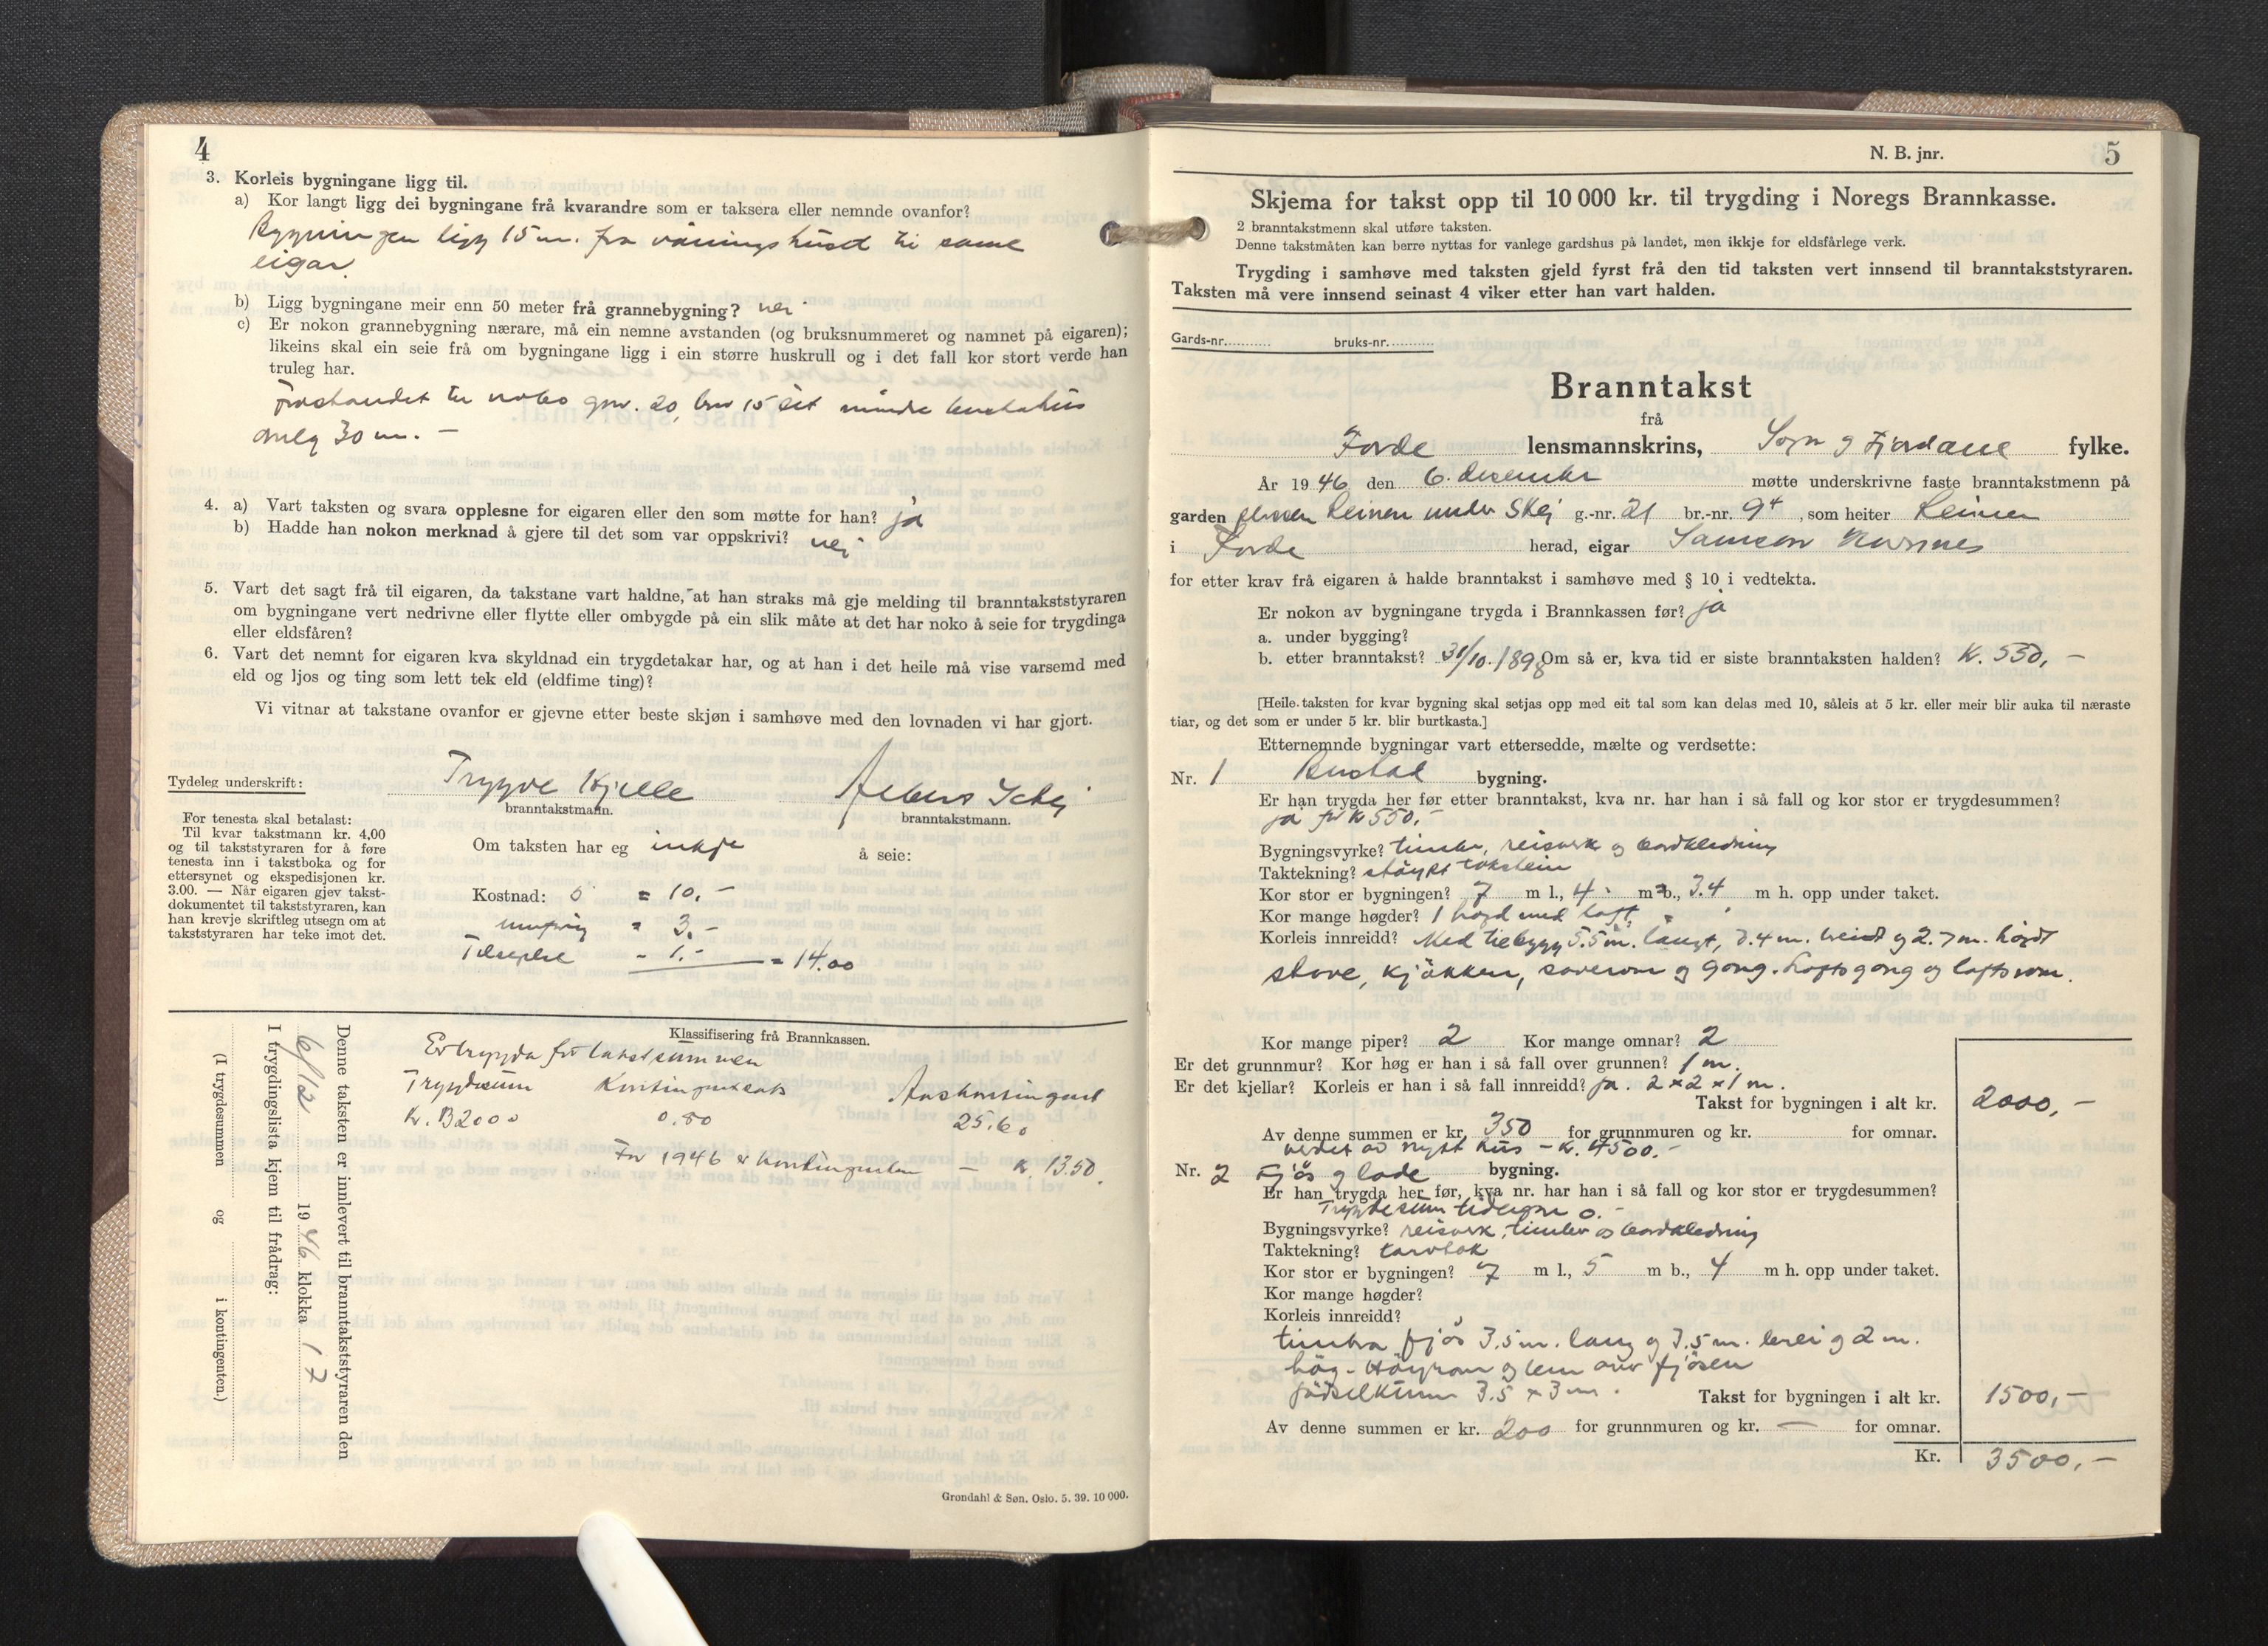 4
3. Korleis bygningane ligg til.
a) Kor langt ligg dei bygningane frå kvarandre som er taksera eller nemnde ovanfor?
Bygningen ligg 15 m. fra våningshuset til same
eigar.
b) Ligg bygningane meir enn 50 meter frå grannebygning? nei
c) Er nokon grannebygning nærare, må ein nemne avstanden (og bruksnummeret og namnet på eigaren);
likeins skal ein seie frå om bygningane ligg i ein større huskrull og i det fall kor stort verde han
truleg har.
Frastandet til nabo gnr. 20, bnr 15 eit mindre bustahus
omlag 30 m. —
4. a) Vart taksten og svara opplesne for eigaren eller den som møtte for han? ja
b) Hadde han nokon merknad å gjere til det som var oppskrivi? nei
5. Vart det sagt frå til eigaren, da takstane vart haldne, at han straks må gje melding til branntakststyraren
om bygningane vert nedrivne eller flytte eller ombygde på ein slik måte at det har noko å seie for trygdinga
eller eldsfåren?
6. Vart det nemnt for eigaren kva skyldnad ein trygdetakar har, og at han i det heile må vise varsemd med
eld og ljos og ting som lett tek eld (eldfime ting)?
Vi vitnar at takstane ovanfor er gjevne etter beste skjøn i samhøve med den lovnaden vi har gjort.
Tydeleg underskrift: Trygve Kjelle Albert Schej
branntakstmann. branntakstmann.
For tenesta skal betalast:
Til kvar takstmann kr. 4,00
og til takststyraren for å føre
tenesta inn i takstboka og for
ettersynet og ekspedisjonen kr.
3.00. — Når eigaren gjev takst-
dokumentet til takststyraren, kan
han krevje skriftleg utsegn om at
takststyraren har teke imot det.
Om taksten har eg inkje å seie:
Kostnad: = 10.—
= 3.—
- 1.— = 14.00
Klassifisering frå Brannkassen.
Er trygda for takstsummen
Trygdesum Kontingentsats Årskontingent
Kr. B2000 0.80 25.60
For 1946 er kontingenten — kr. 13.50.
Denne taksten er innlevert til branntakststyraren den
6/12 1946 klokka 17
I trygdingslista kjem til frådrag:
(I trygdesummen og i kontingenten.)
Grøndahl & Søn, Oslo. 5. 39. 10 000.
N. B. jnr. 5
Skjema for takst opp til 10 000 kr. til trygding i Noregs Brannkasse.
2 branntakstmenn skal utføre taksten.
Denne takstmåten kan berre nyttas for vanlege gardshus på landet, men ikkje for eldsfårlege verk.
Trygding i samhøve med taksten gjeld fyrst frå den tid taksten vert innsend til branntakststyraren.
Taksten må vere innsend seinast 4 viker etter han vart halden.
Gards-nr. bruks-nr.
Branntakst
frå
Førde lensmannskrins, Sogn og Fjordane fylke.
År 1946 den 6. desember møtte underskrivne faste branntakstmenn på
garden Reinen under Skej g.-nr. 21 br.-nr. 94, som heiter Reinen
i Førde herad, eigar Samson
for etter krav frå eigaren å halde branntakst i samhøve med § 10 i vedtekta.
Er nokon av bygningane trygda i Brannkassen før? ja
a. under bygging?
b. etter branntakst? 31/10. 1898 Om så er, kva tid er siste branntaksten halden? kr. 550,—
[Heile taksten for kvar bygning skal setjas opp med eit tal som kan delas med 10, såleis at 5 kr. eller meir blir auka til næraste
tiar, og det som er under 5 kr. blir burtkasta.]
Etternemnde bygningar vart ettersedde, mælte og verdsette:
Nr. 1 Bustad bygning.
Er han trygda her før etter branntakst, kva nr. har han i så fall og kor stor er trygdesummen?
ja for kr 550,—
Bygningsvyrke? timber, reisverk og bordkledning
Taktekning? støypt takstein
Kor stor er bygningen? 7 m l., 4 m b., 3.4 m h. opp under taket.
Kor mange høgder? 1 høgd med loft
Korleis innreidd? Med tilbygg 5.5 m. langt, 3.4 m. breidt og 2.7 m. høgdt
stove, kjøkken, soverom og gong. Loftsgong og loftsrom.
Kor mange piper? 2 Kor mange omnar? 2
Er det grunnmur? Kor høg er han i så fall over grunnen? 1 m.
Er det kjellar? Korleis er han i så fall innreidd? ja. 2 × 2 × 1 m.
Takst for bygningen i alt kr. 2000,—
Av denne summen er kr. 350 for grunnmuren og kr. for omnar.
verdet av nytt hus — kr. 4500.—
Nr. 2 Fjøs og løde bygning.
Er han trygda her før, kva nr. har han i så fall og kor stor er trygdesummen?
Trygdesum tidligere 0.—
Bygningsvyrke? reisverk, timber og bordkledning
Taktekning? torvtak
Kor stor er bygningen? 7 m l., 5 m b., 4 m h. opp under taket.
Kor mange høgder?
Korleis innreidd?
timbra fjøs 3.5 m. lang og 3.5 m. brei og 2 m.
høg - Høyrom og lem over fjøsen
3.5 × 3 m. Takst for bygningen i alt kr. 1500,—
Av denne summen er kr. 200 for grunnmuren og kr. — for omnar.
Kr. 3500,—